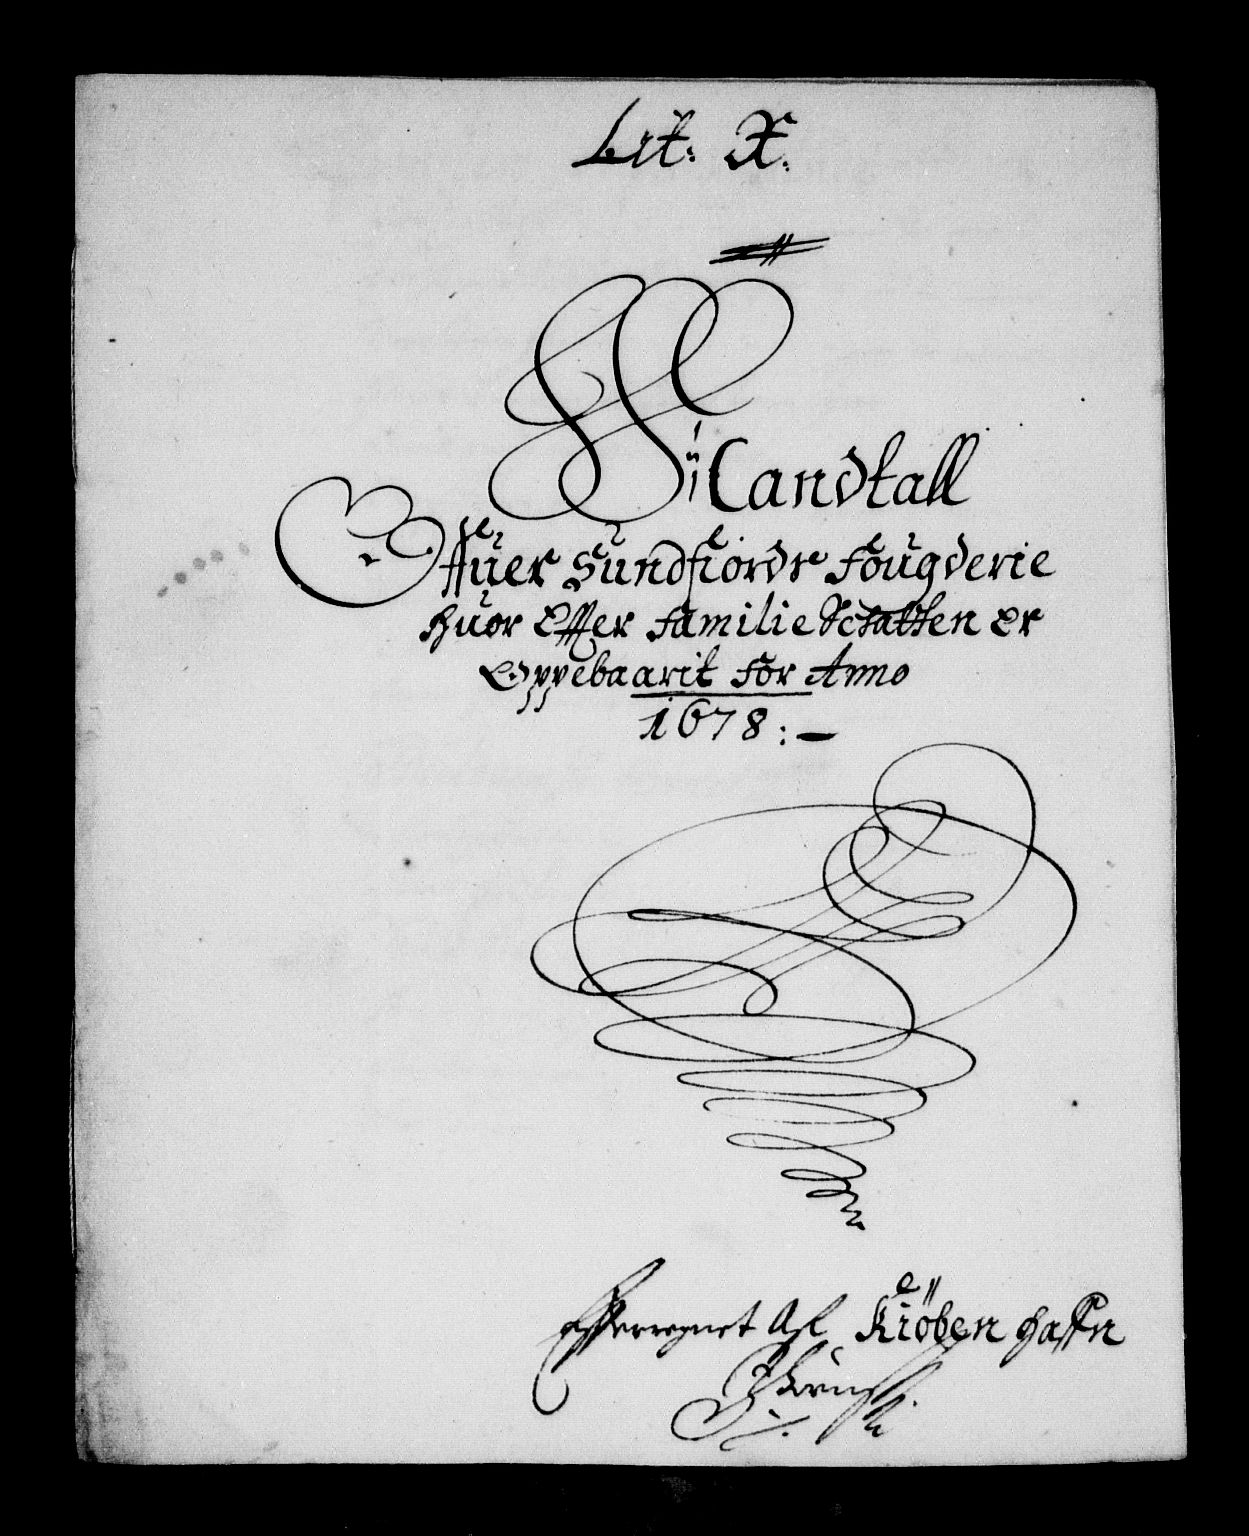 Lit: X.
Mandtall
Offuer Sundfiords Fougderie
huor Effter familie Schatten Er
Oppebaarit for Anno
1678:
Effterregnet Af Kiöben haffn